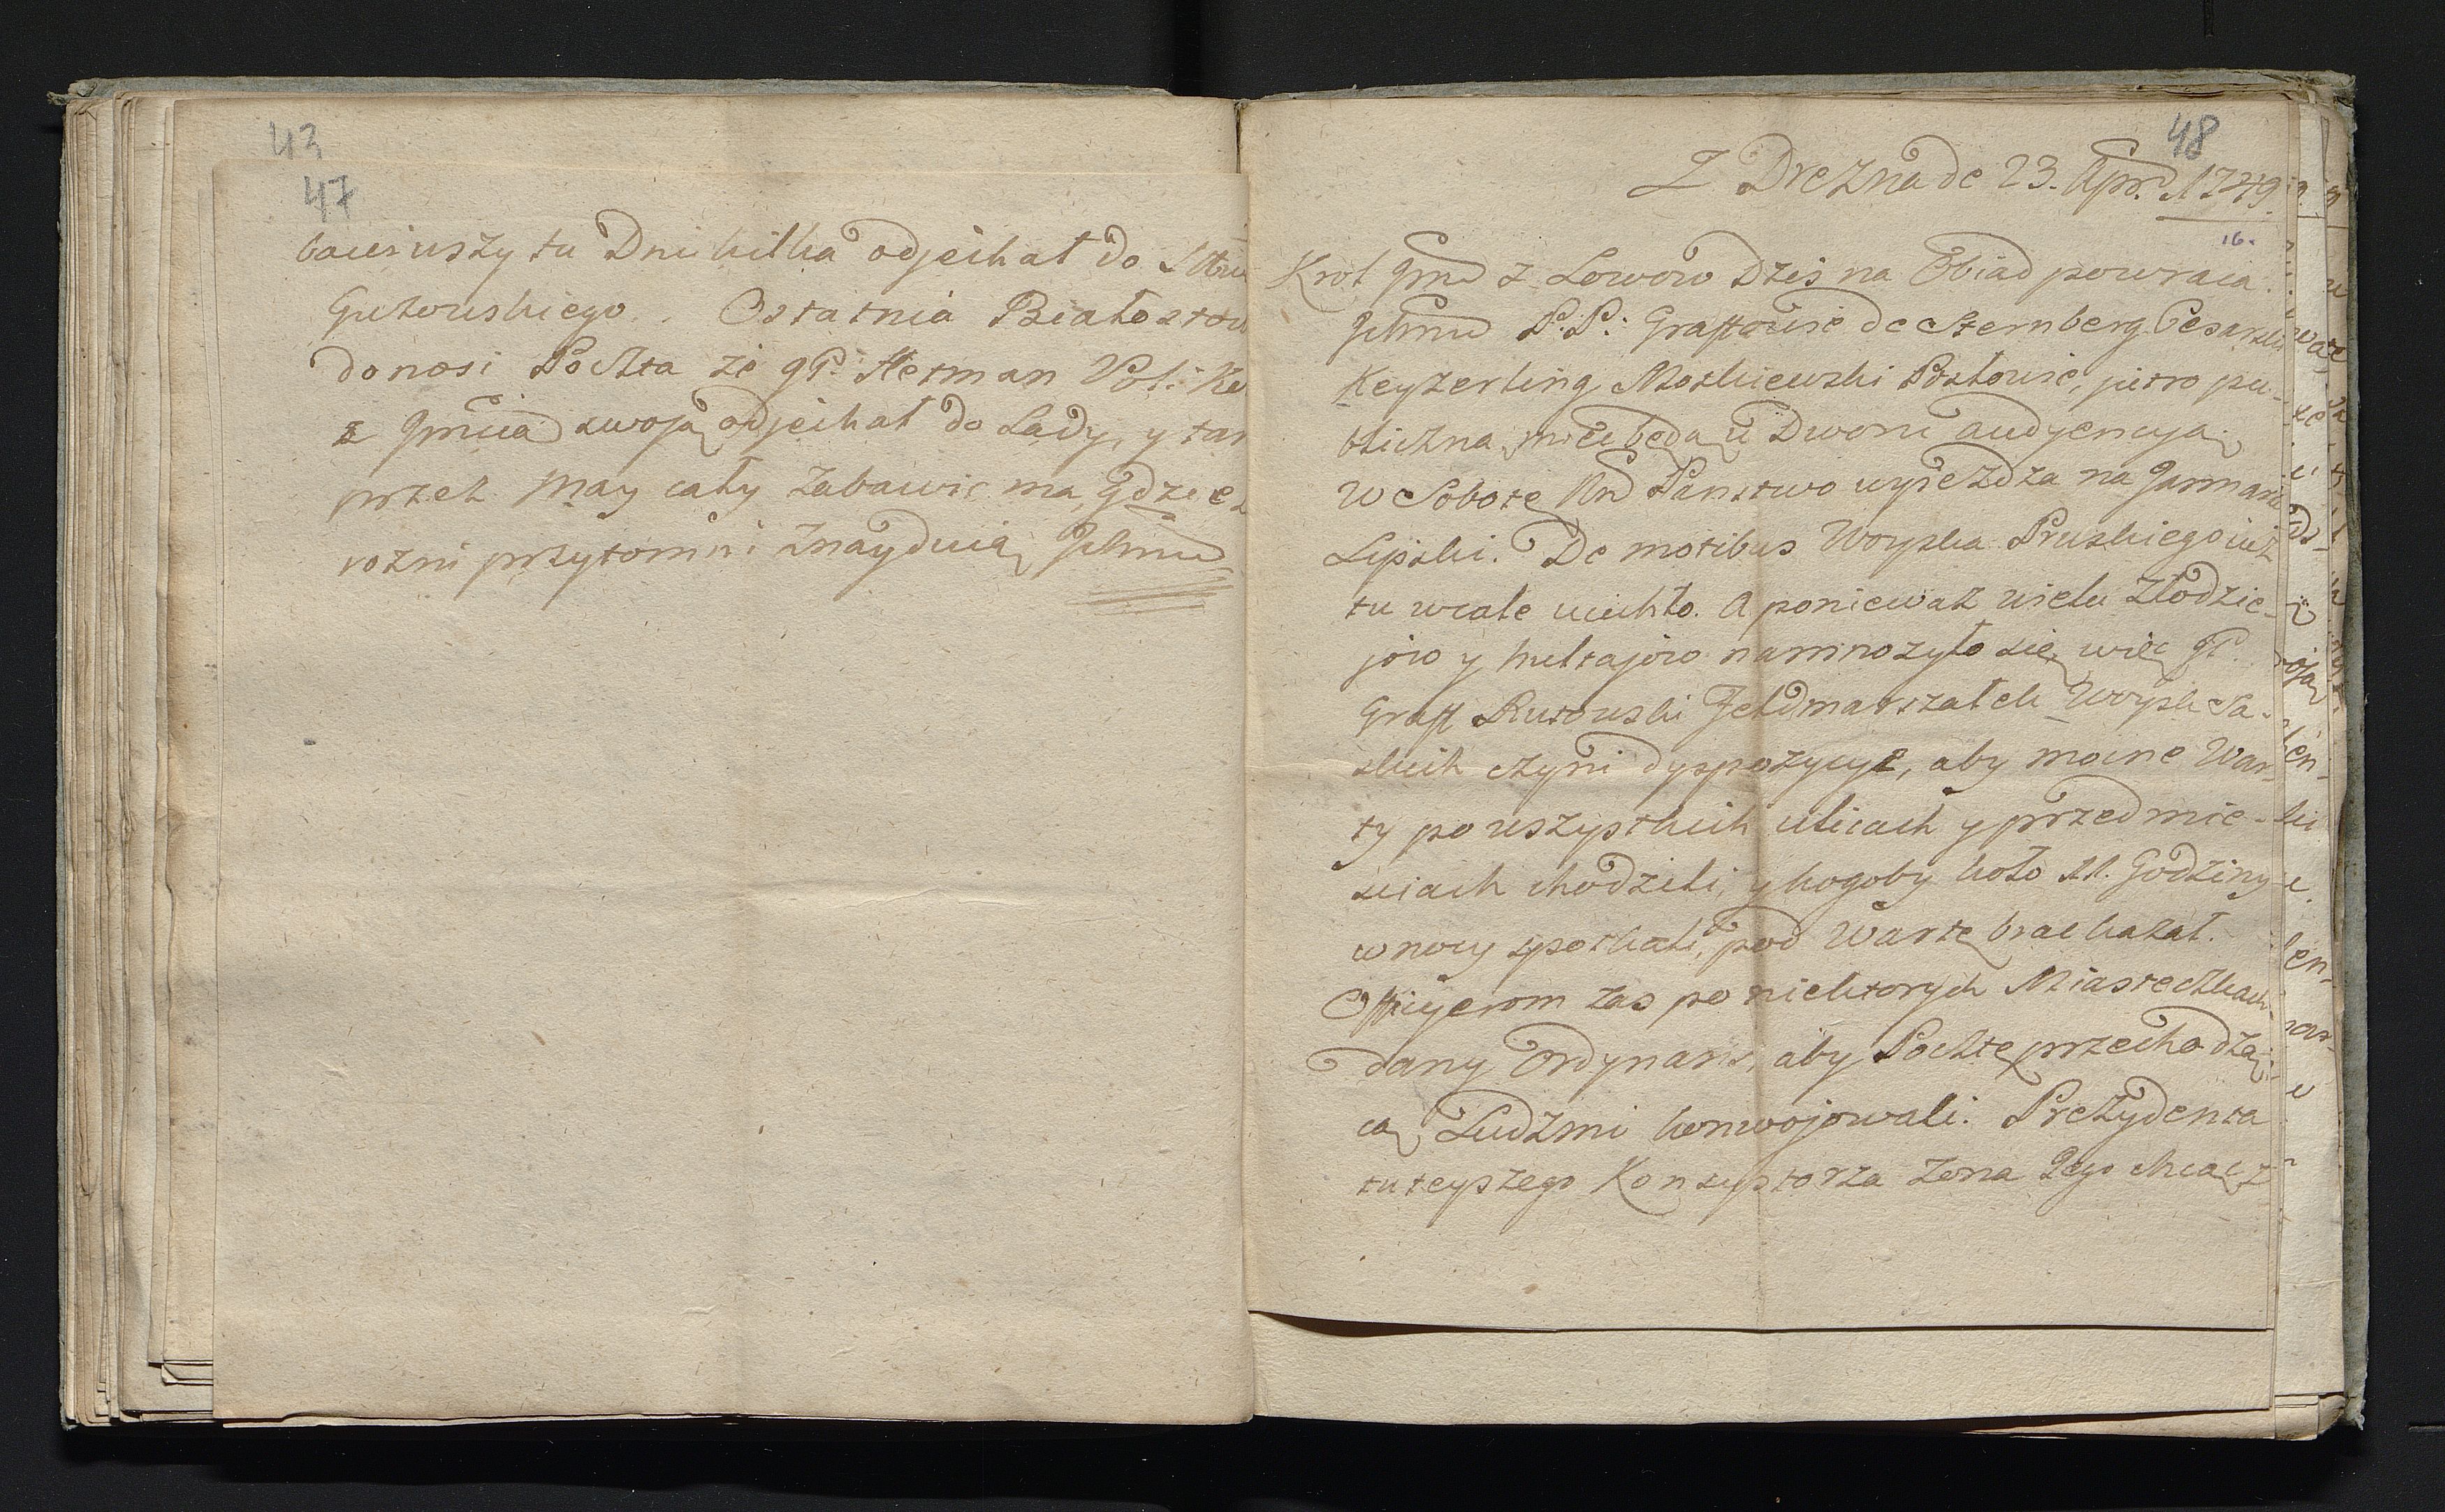 43
47
bawiuszy tu Dni kilka odjechał do
Gutowskiego. Ostatnia Białosto
donosi Poczta że JP. Hetman Pol: Ko
z Jmcią swoią odjechał do Lady, y tam
przez May cały zabawić ma, gdzie
rozni przytomni znayduią Ichmć
48
Z Drezna de 23. Apr. 1749.
16.
Krol Jmć z Łowow dziś na Obiad powraca.
Ichmć P.P: Graffowie de Sternberg Cesarski
Keyzerling Moskiewski Posłowie, jutro pu-
bliczną mieć będą u Dworu audyencyą,
W Sobotę Nro Panstwo wyjeżdza na Jarmark
Lipski. De motibus Woyska Pruskiego już
tu wcale ucichło. A ponieważ wielu złodzie-
jow y hultajow namnożyło się, więc JP.
Graff Rutowski Feldmarszałek Woysk Sa-
skich czyni dyspozycye, aby mocne War-
ty po wszystkich ulicach y przedmie-
sciach chodzili, y kogoby koło 11. Godziny
w nocy spotkali, pod Wartę brać kazał.
Officyerom zas po niektorych Miasteczkach
dany Ordynans, aby Pocztę przechodzą-
cą Ludzmi konwojowali. Prezydenta
tuteyszego Konsystorza żona Jego chcąc z